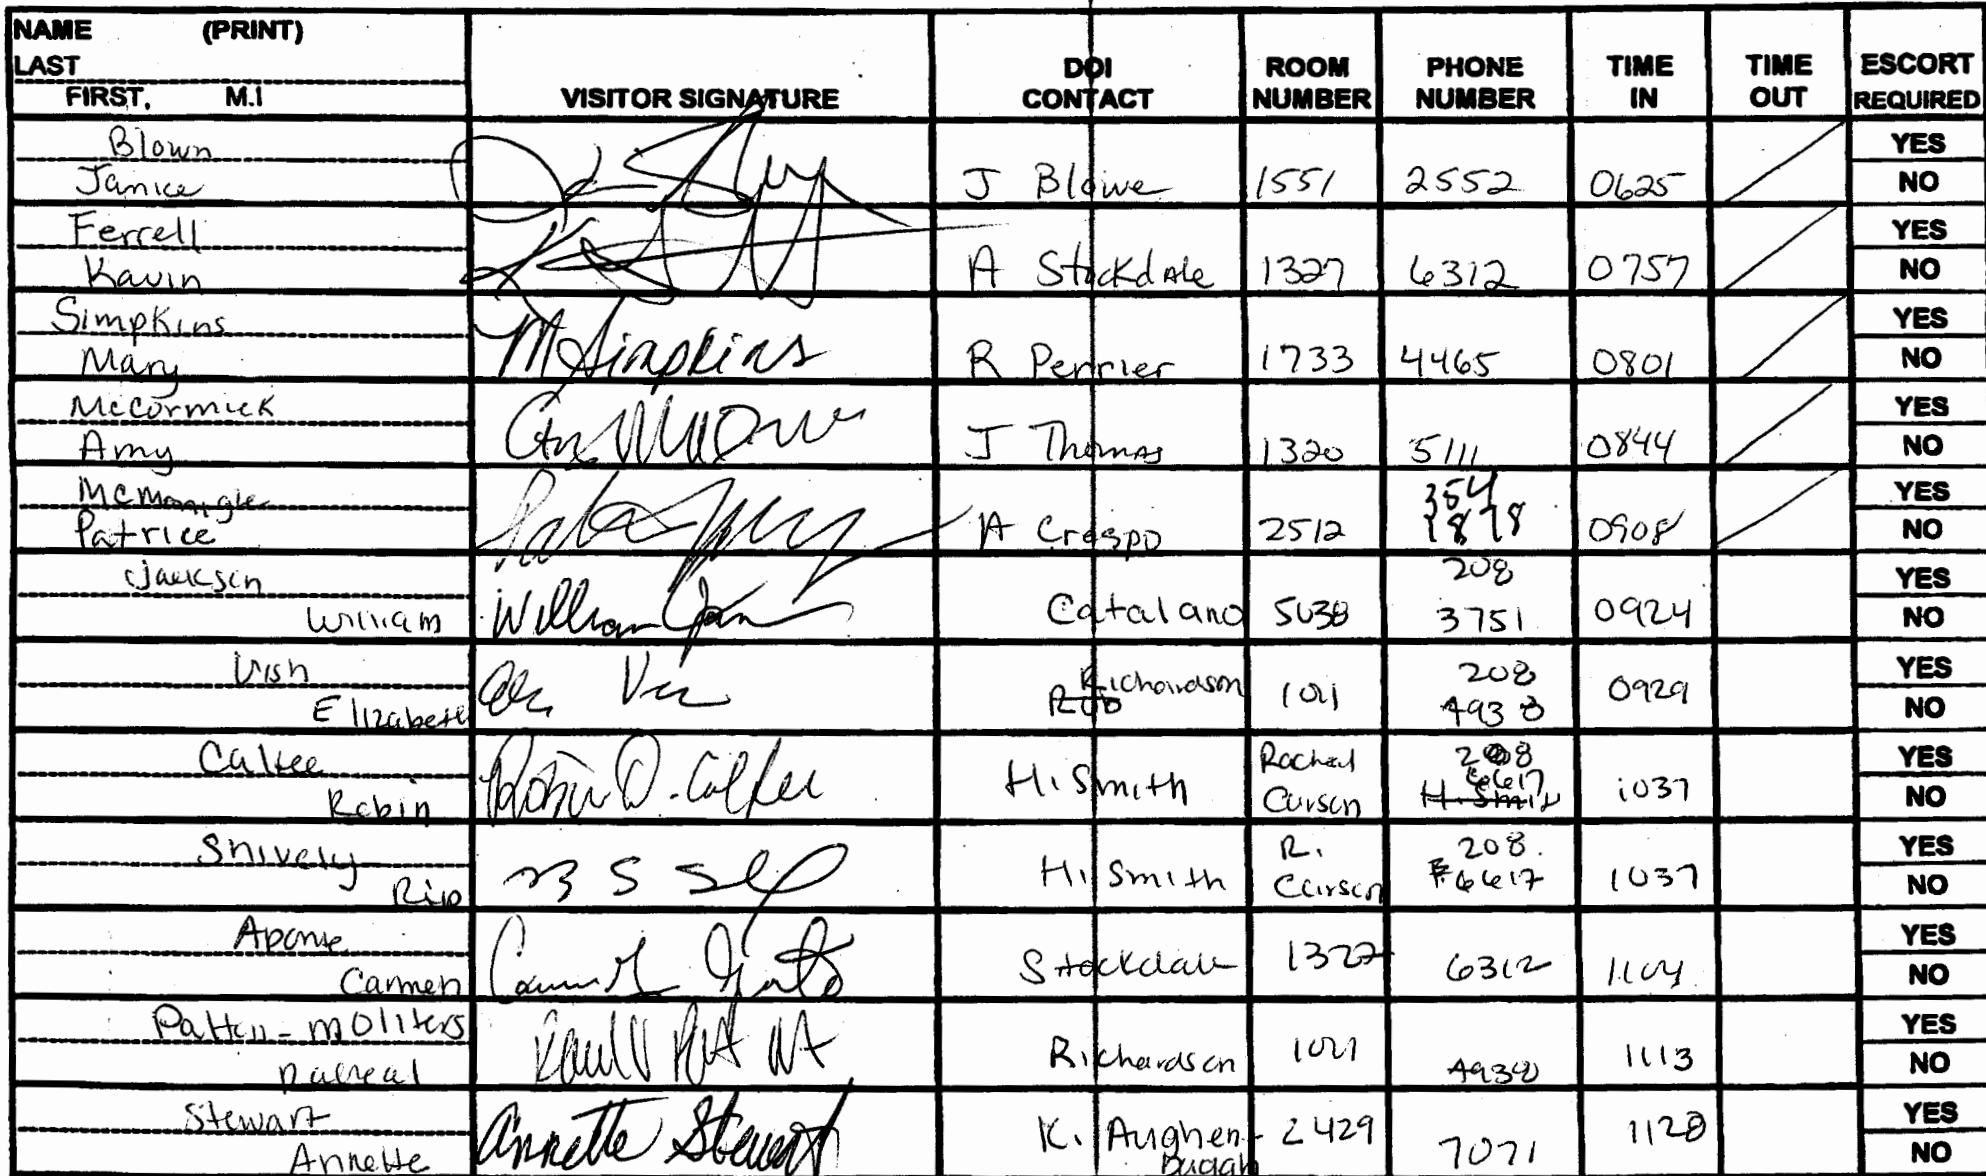 NAME (PRINT)
LAST
FIRST, M.I
VISITOR SIGNATURE
DOI
CONTACT
ROOM
NUMBER
PHONE
NUMBER
TIME
IN
TIME
OUT
ESCORT
REQUIRED
Blown
Janice
J Blowe 1551 2552 0625
YES
NO
Ferrell
Kavin
A Stockdale 1327 6312 0757
YES
NO
Simpkins
Mary
M Simpkins
R Perrier 1733 4465 0801
YES
NO
McCormick
Amy
J Thomas 1320 5111 0844
YES
NO
McMonigle
Patrice
A Crespo 2512
354
1878
0908
YES
NO
Jackson
William
William
Catalano 5038
208
3751
0924
YES
NO
Vish
Elizabeth
Richardson
Rob
1011
208
4938
0929
YES
NO
Calfee
Robin
Robin D. Calfee
H. Smith
Rachel
Carson
208
6617
H. Smith
1037
YES
NO
Shively
Rip
H. Smith
R.
Carson
208
6617
1037
YES
NO
Aponte
Carmen
Stockdale 1327 6312 1104
YES
NO
Patten-moliters
Richardson 1011 4938 1113
YES
NO
Stewart
Annette
Annette Stewart
K. Aughen-
baugh
2429 7071 1128
YES
NO